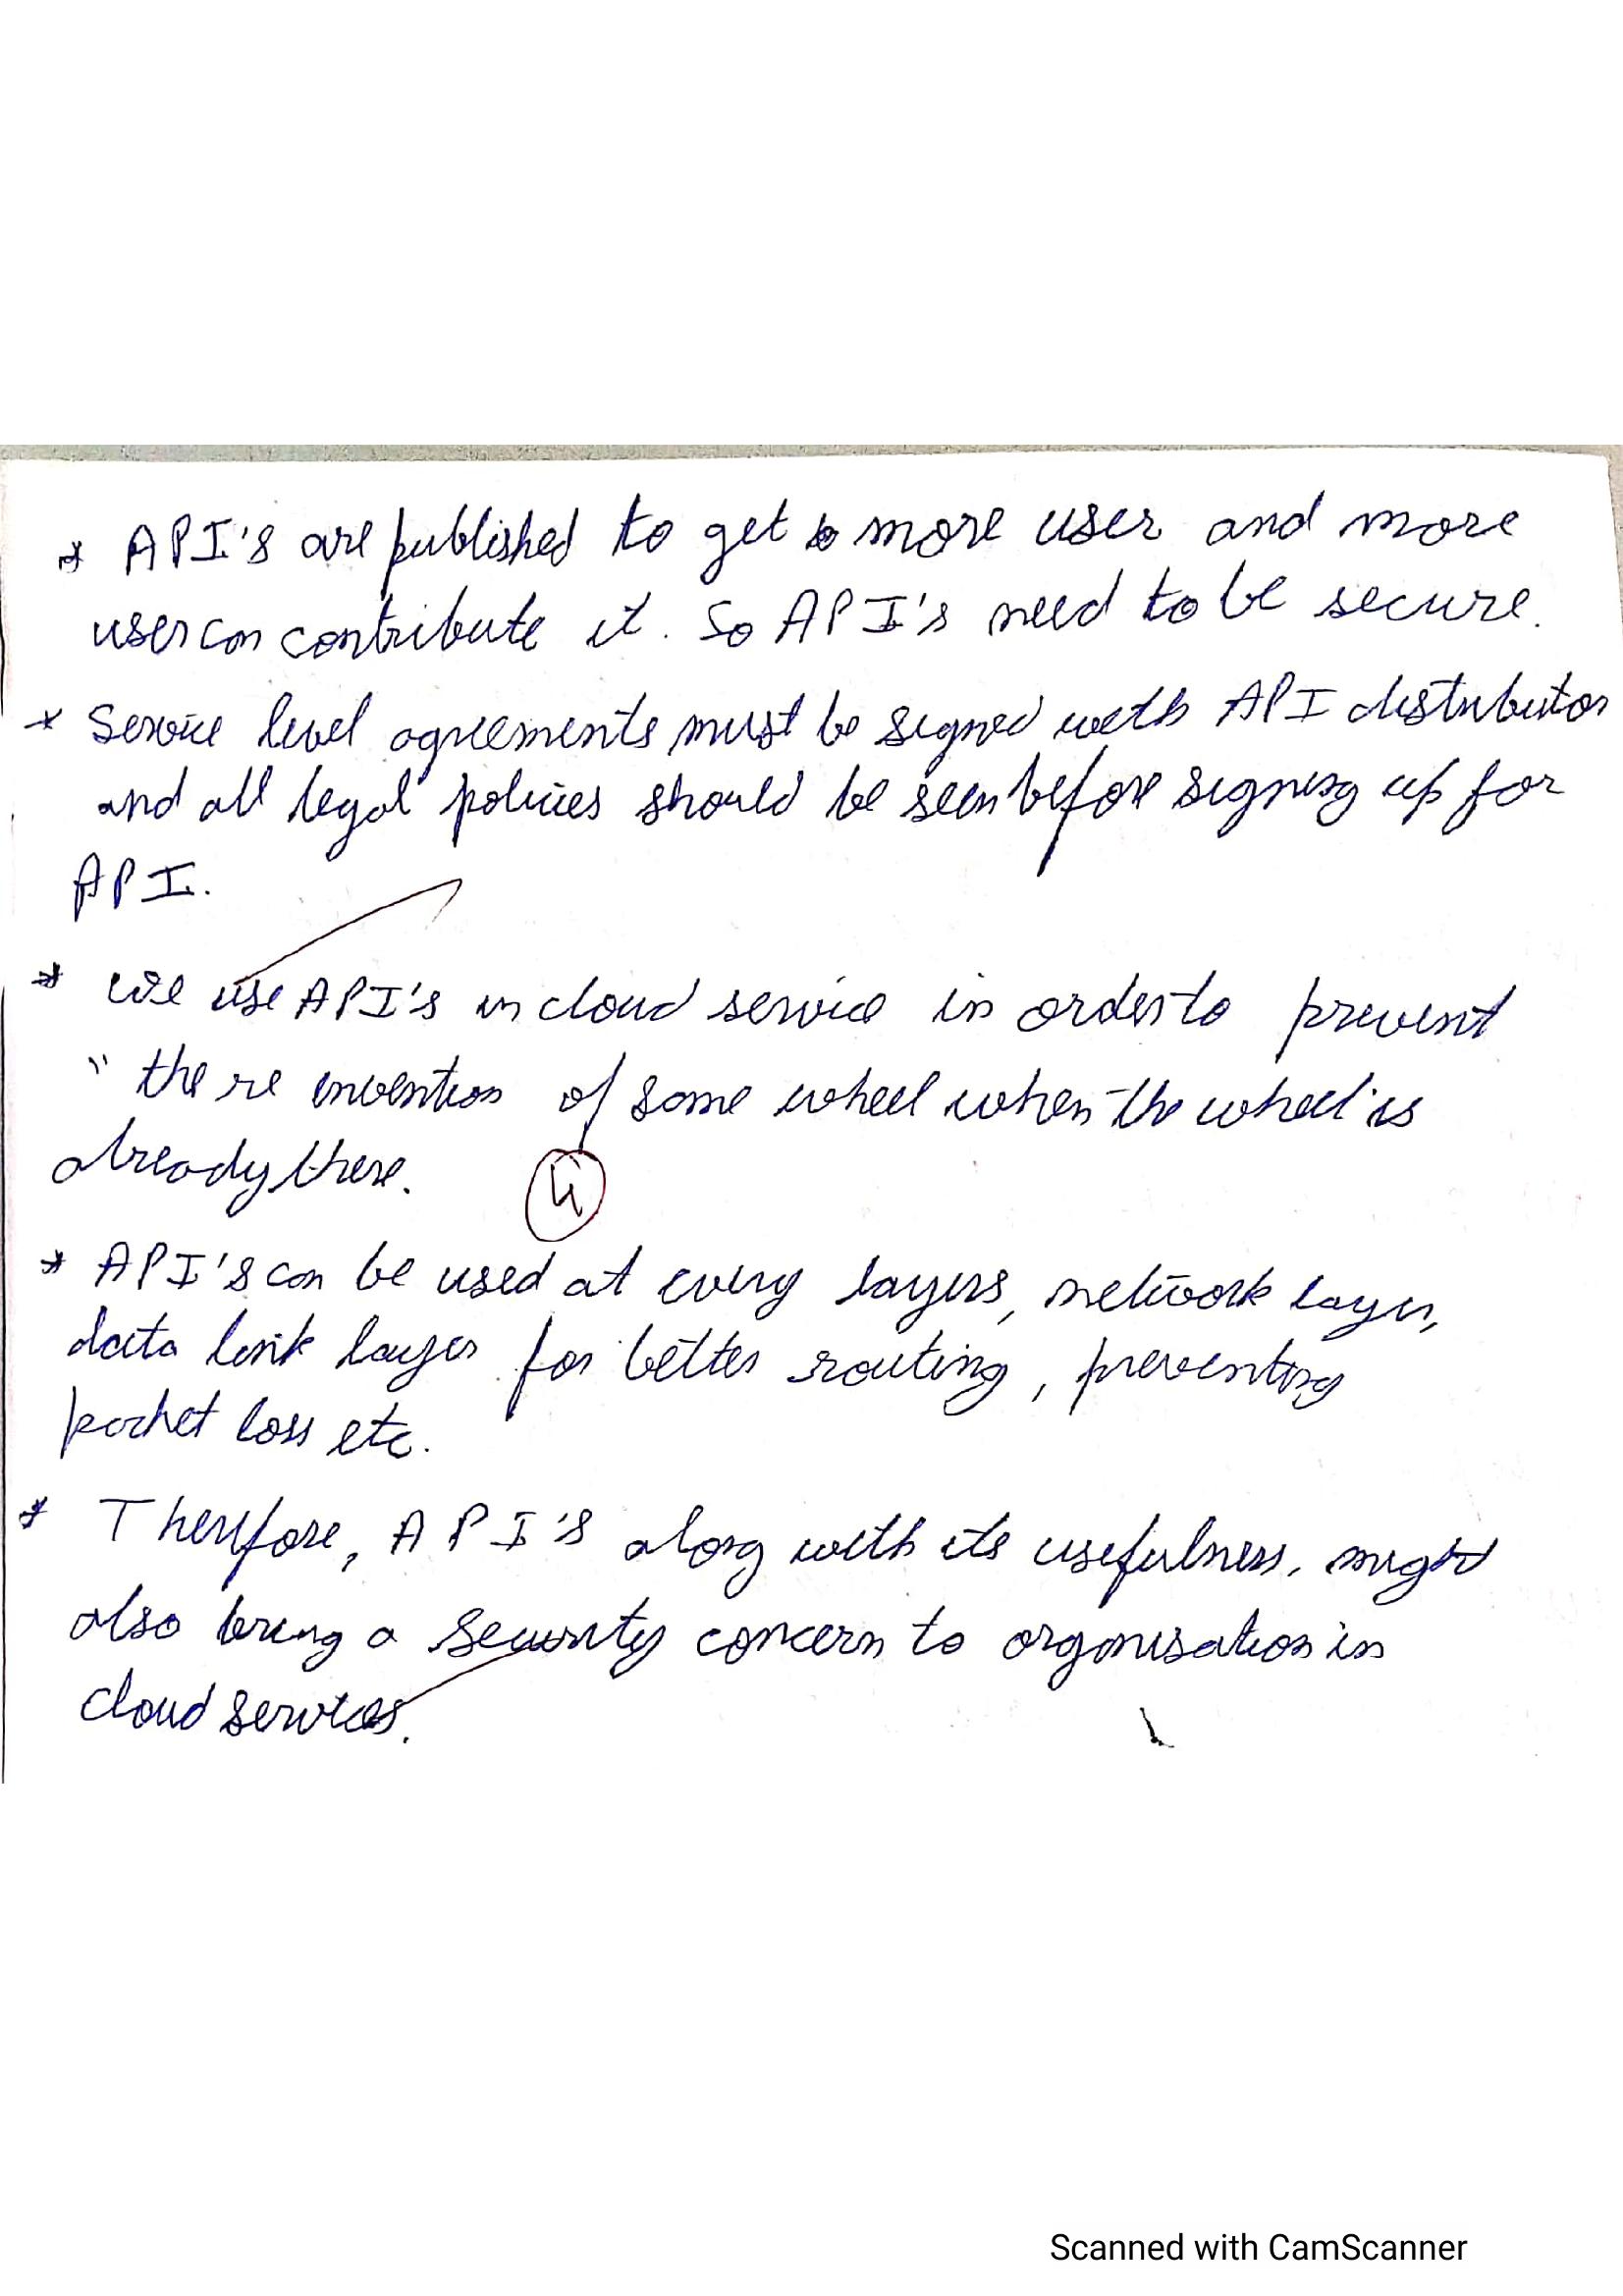 * API's are published to get more user and more
user can contribute it. So API's need to be secure.
* Service level agreements must be signed with API distributor
and all legal policies should be seen before signing up for
API.
* We use API's in cloud service in order to prevent
" the re invention of same wheel when the wheel is
already there.
4
* API's can be used at every layers, network layer,
data link layer for better routing, preventing
packet loss etc.
* Therefore, API's along with its usefulness, might
also bring a security concern to organisation in
cloud services.
Scanned with CamScanner